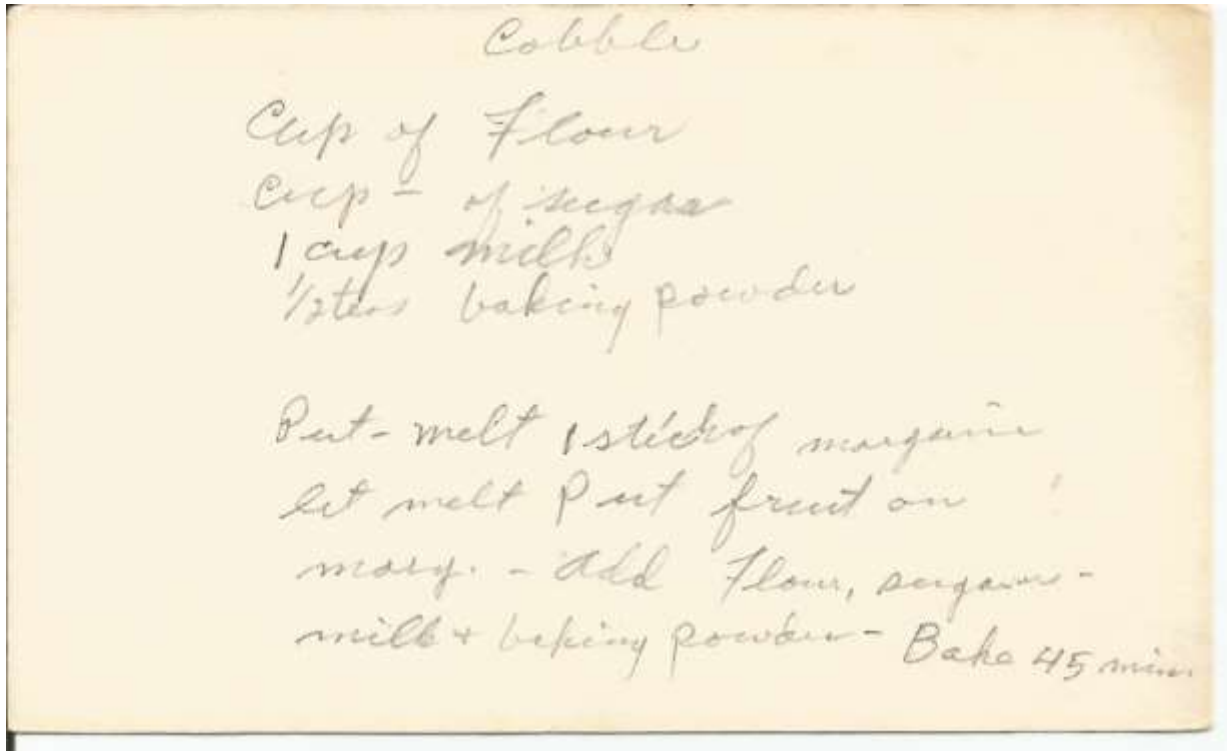 Cobbler
Cup of Flour
Cup - of sugar
1 cup milk
1/2 teas baking powder
Put - melt 1 stick of margarine
let melt Put fruit on
marg. - Add Flour, sugar -
milk + baking powder - Bake 45 min.